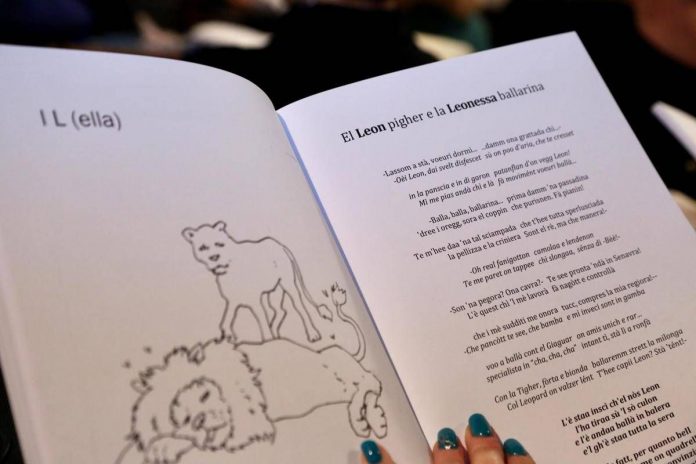 I L (ella)
El Leon pigher e la Leonessa ballarina
-Lassom a stà, voeuri dormì... ...damm ona grattada chì...-
-Oèi Leon, dai svelt disfescet sù on poo d'aria, che te cresset
in la panscia e in di garon patanflan d'on vegg Leon!
Mi me pias andà chì e là fà movimént voeuri ballà...
-Balla, balla, ballarina... prima damm 'na passadina
'dree i oregg, sora el coppin che purisnen. Fà pianin!
Te m'hee daa 'na tal sciampada che t'hee tutta sperlusciada
la pellizza e la criniera Sont el rè, ma che manera!-
-Oh real fanigotton camolaa e lendenon
Te me paret on tappee chì slongaa, sénza dì -Bèè!-
-Son 'na pegora? Ona cavra!- Te see pronta 'ndà in Senavra!
L'è quest chì 'l mè lavorà fà nagitt e controllà
che i mè sudditi me onora tucc, compres la mia regiora!--
-Che pancòtt te see, che bamba e mì inveci sont in gamba
voo a ballà cont el Giaguar on amis unich e rar...
specialista in "cha, cha, cha" intant ti, stà lì a ronfà
Con la Tigher, fòrta e bionda ballaremm strett la milonga
Col Leopard on valzer lént T'hee capii Leon? Stà 'tént!-
L'è staa insci ch'el nòs Leon
l'ha tiraa sù 'l sò culon
e l'è andaa ballà in balera
e l gh'è staa tutta la sera
fatt, per quanto bell,
me on quadr